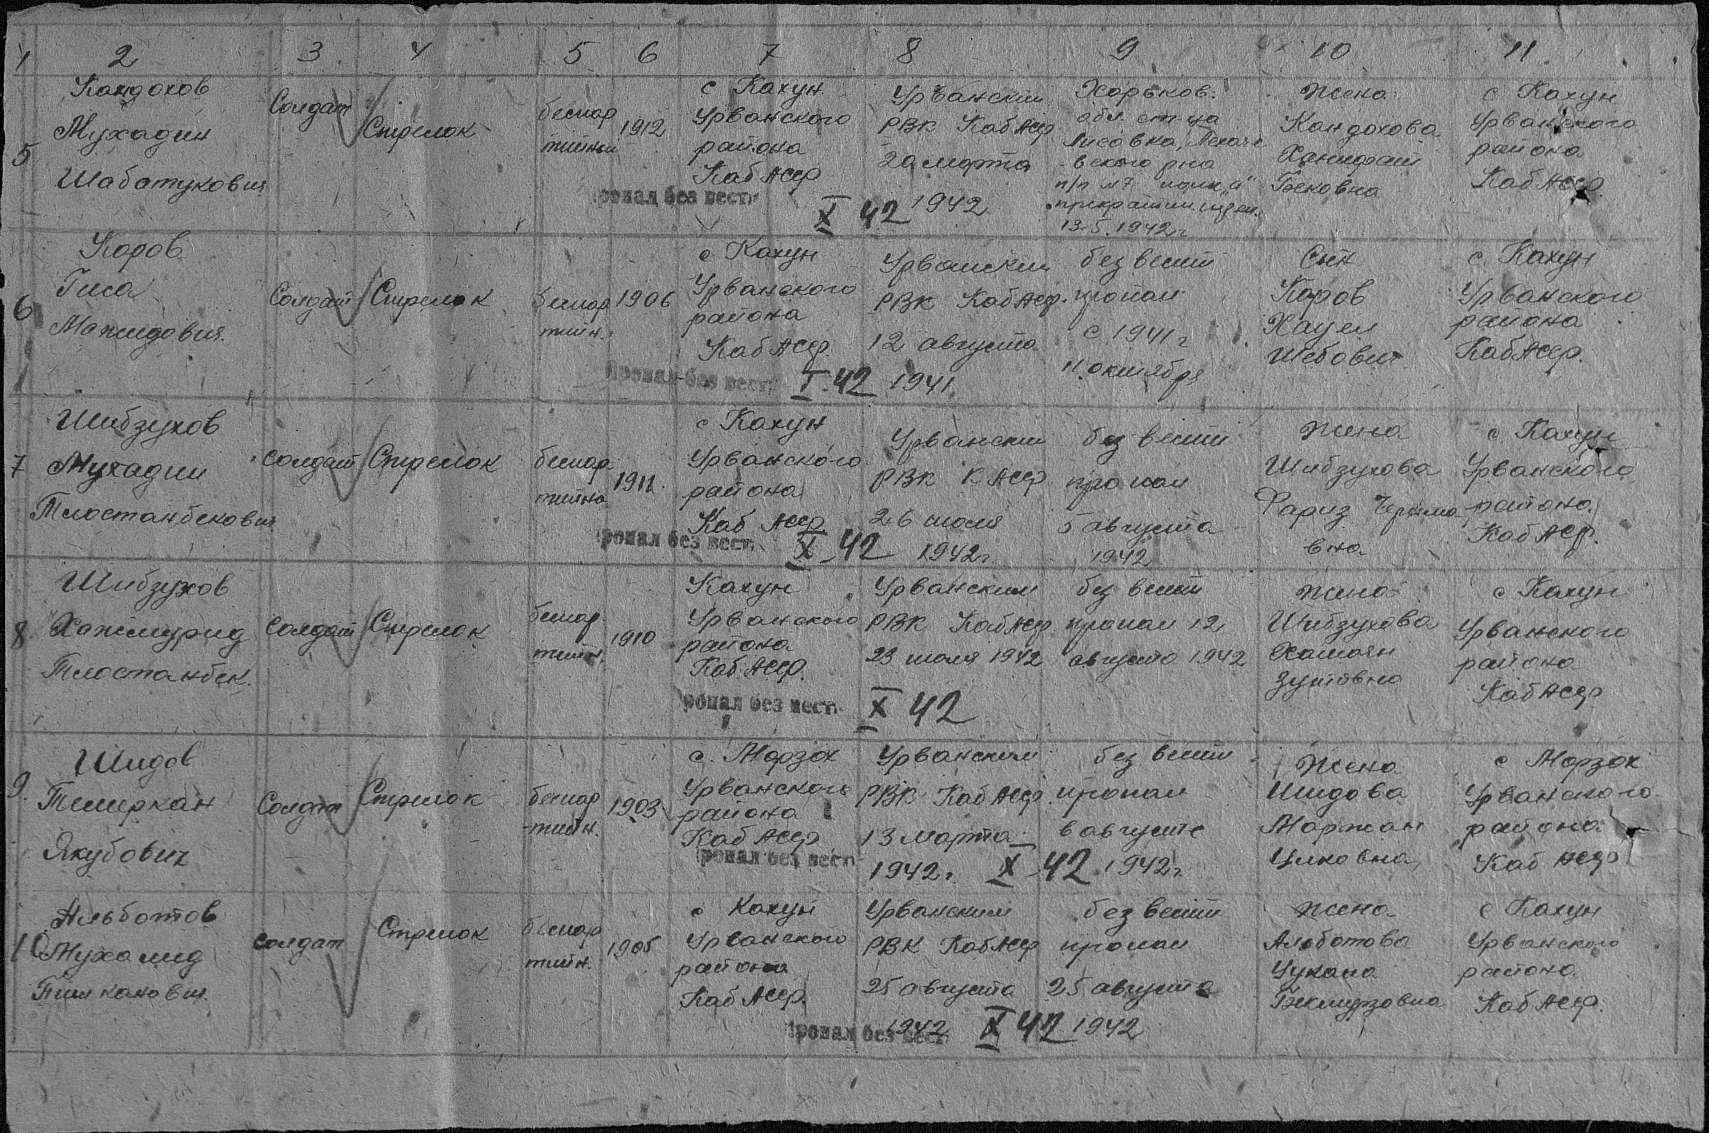 1 2 3 4 5 6 7 8 9 10 11
5
Кандохов
Мухадин
Шабатукович
Солдат
Стрелок
беспар
тийный
1912
с Кахун
Урванского
района
Каб Асср
Урванским
РВК Каб Асср
20 марта
1942
Харьков.
обл. ст-ца
Лисовка,
вского р-на
п/п №7
прекратил
13.5.1942 г
жена
Кандохова
Ханифат
Бековна
с Кахун
Урванского
района
Каб Асср
ропал без вест
X 42
6
Каров
Гиса
Мажидович
Солдат
Стрелок
беспар
тийн.
1906
с Кахун
Урванского
района
Каб Асср.
Урванским
РВК Каб Асср.
12 августа
1941
без вести
пропал
с 1941 г
11 октября
Сын
Каров
Хауел
с. Кахун
Урванского
района
Каб Асср.
Пропал без вест
I 42
7
Шибзухов
Мухадин
Тлостанбекович
солдат
Стрелок
беспар
тийна
1911
с Кахун
Урванского
района
Каб Асср
Урванским
РВК К Асср
26 июля
1942 г
без вести
пропал
5 августа
1942
жена
Шибзухова
Фариз
вна
с Кахун
Урванского
района
Каб Асср.
ропал без вест
X 42
8
Шибзухов
Хажмурид
Тлостанбек.
солдат
Стрелок
беспар
тийн.
1910
Кахун
Урванского
района
Каб Асср.
Урванским
РВК Каб Асср
23 июля 1942
без вести
пропал 12
августа 1942
жена
Шибзухова
с Кахун
Урванского
района
Каб Асср
ропал без вест
X 42
9
Шидов
Темиркан
Якубович
Солдат
Стрелок
беспар
тийн.
1903
с. Морзох
Урванского
района
Каб Асср
Урванским
РВК Каб Асср.
13 марта
1942 г.
без вести
пропал
в августе
1942 г
жена
Шидова
Маржан
с Морзох
Урванского
района
Каб Асср
ропал без вест
X 42
10
Альботов
Мухамид
Солдат
Стрелок
беспар
тийн.
1905
с Кахун
Урванского
района
Каб Асср.
Урванским
РВК Каб Асср
25 августа
1942
без вести
пропал
25 августа
1942
жена
Альботова
Цукана
Бекмурзовна
с Кахун
Урванского
района
Каб Асср.
Пропал без вест
X 42